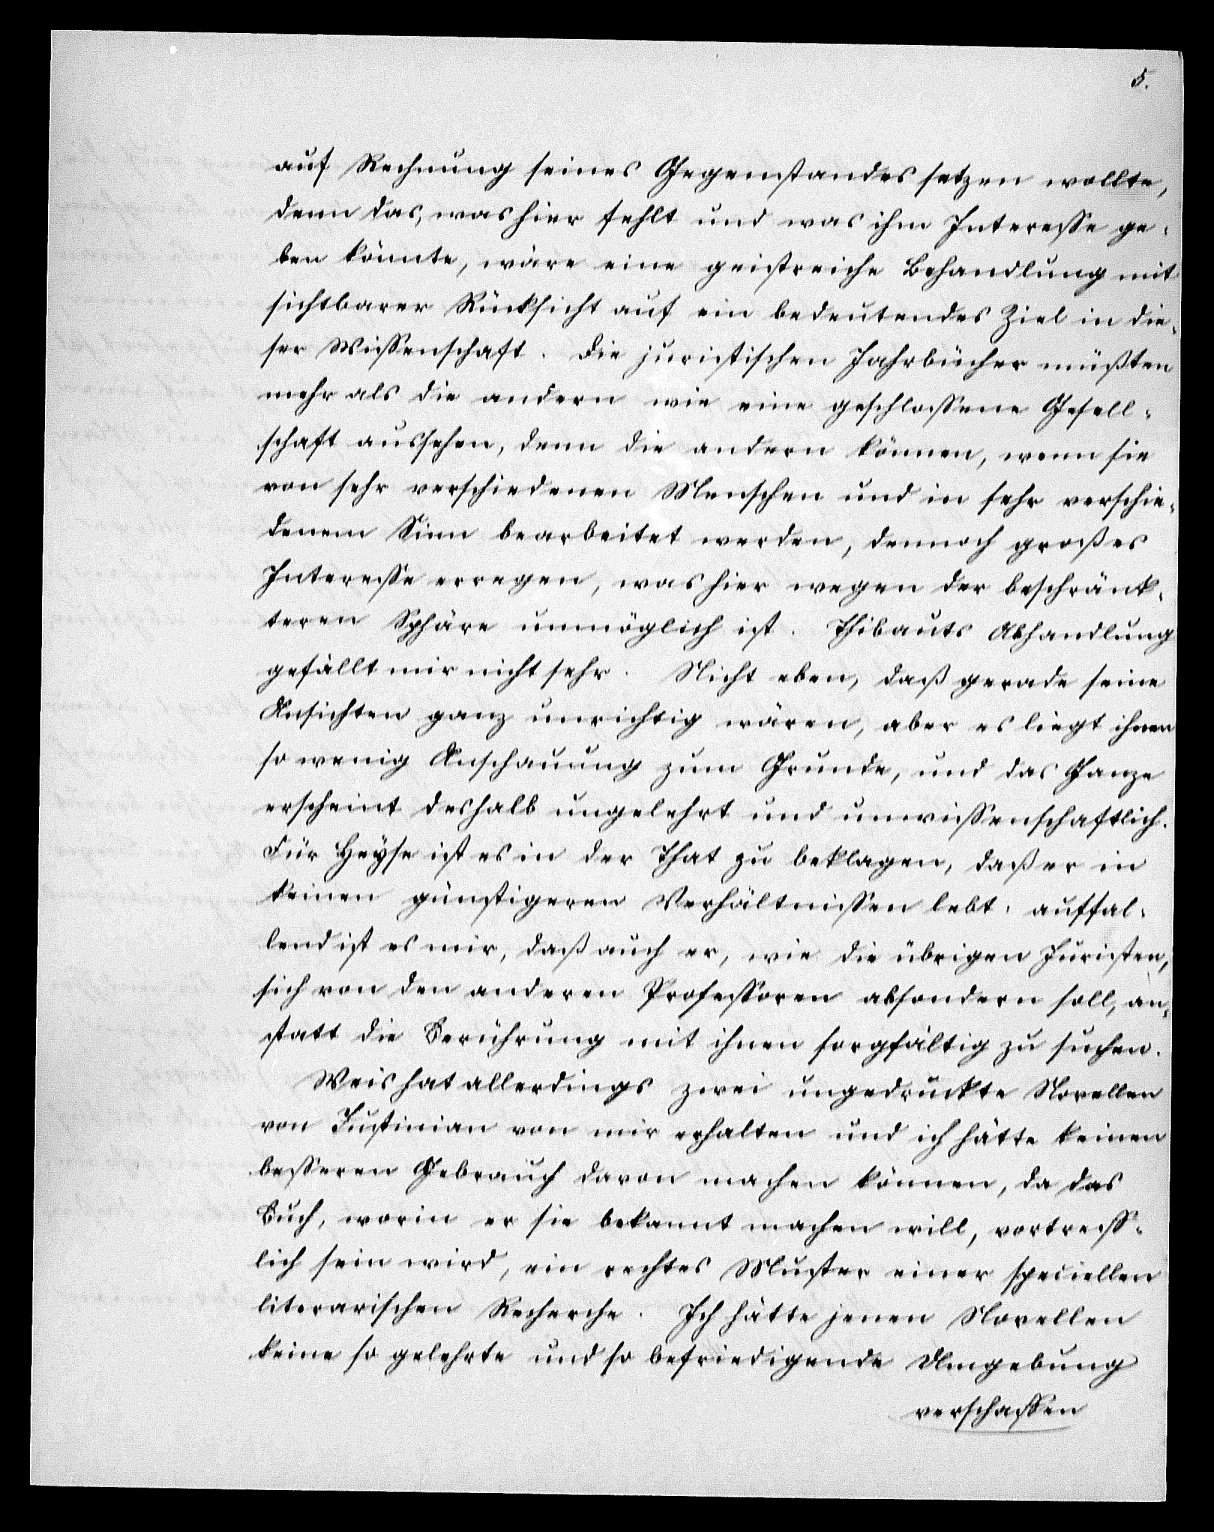 5.
auf Rechnung seines Gegenstandes setzen wollte,
denn das, was hier fehlt und was ihm Interesse ge-
ben könnte, wäre eine geistreiche Behandlung mit
sichtbarer Rücksicht auf ein bedeutendes Ziel in die-
ser Wissenschaft. Die juristischen Jahrbücher müßten
mehr als die andern wie eine geschlossene Gesell-
schaft aussehen, denn die andern können, wenn sie
von sehr verschiedenen Menschen und in sehr verschie-
denem Sinn bearbeitet werden, dennoch großes
Interesse erregen, was hier wegen der beschränk-
teren Sphäre unmöglich ist. Thibauts Abhandlung
gefällt mir nicht sehr. Nicht eben, daß gerade seine
Ansichten ganz unrichtig wären, aber es liegt ihnen
so wenig Anschauung zum Grunde, und das Ganze
erscheint deshalb ungelehrt und unwissenschaftlich.
Für Heyse ist es in der That zu beklagen, daß er in
keinen günstigeren Verhältnissen lebt. auffal-
lend ist es mir, daß auch er, wie die übrigen Juristen,
sich von den anderen Professoren absondern soll, an-
statt die Berührung mit ihnen sorgfältig zu suchen.
Weis hat allerdings zwei ungedruckte Novellen
von Justinian von mir erhalten und ich hätte keinen
besseren Gebrauch davon machen können, da das
Buch, worin er sie bekannt machen will, vortreff-
lich sein wird, ein rechtes Muster einer speciellen
literarischen Recherche. Ich hätte jenen Novellen
keine so gelehrte und so befriedigende Umgebung
verschaffen